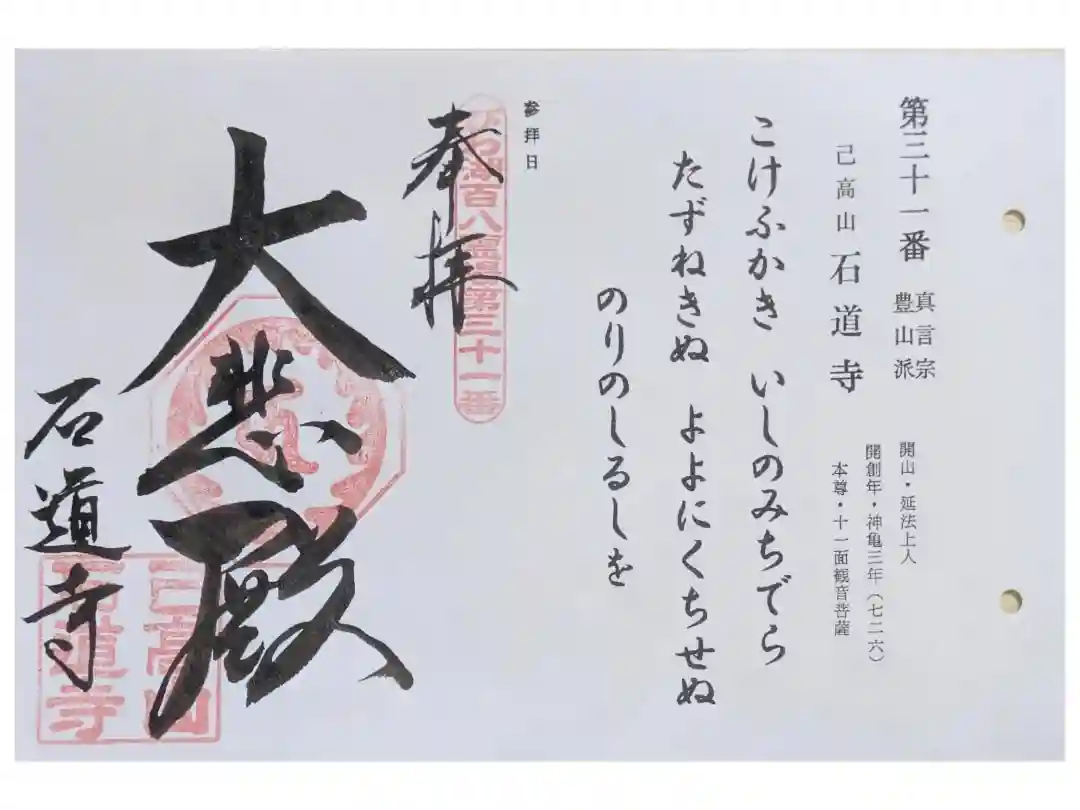 第三十一番
真言宗
豊山派
己高山 石道寺
開山・延法上人
開創年・神亀三年(七二六)
本尊・十一面観音菩薩
こけふかき いしのみちでら
たずねきぬ よよにくちせぬ
のりのしるしを
参拝日
奉拝
百八霊場第三十一番
大悲殿
石道寺
己高山
石道寺